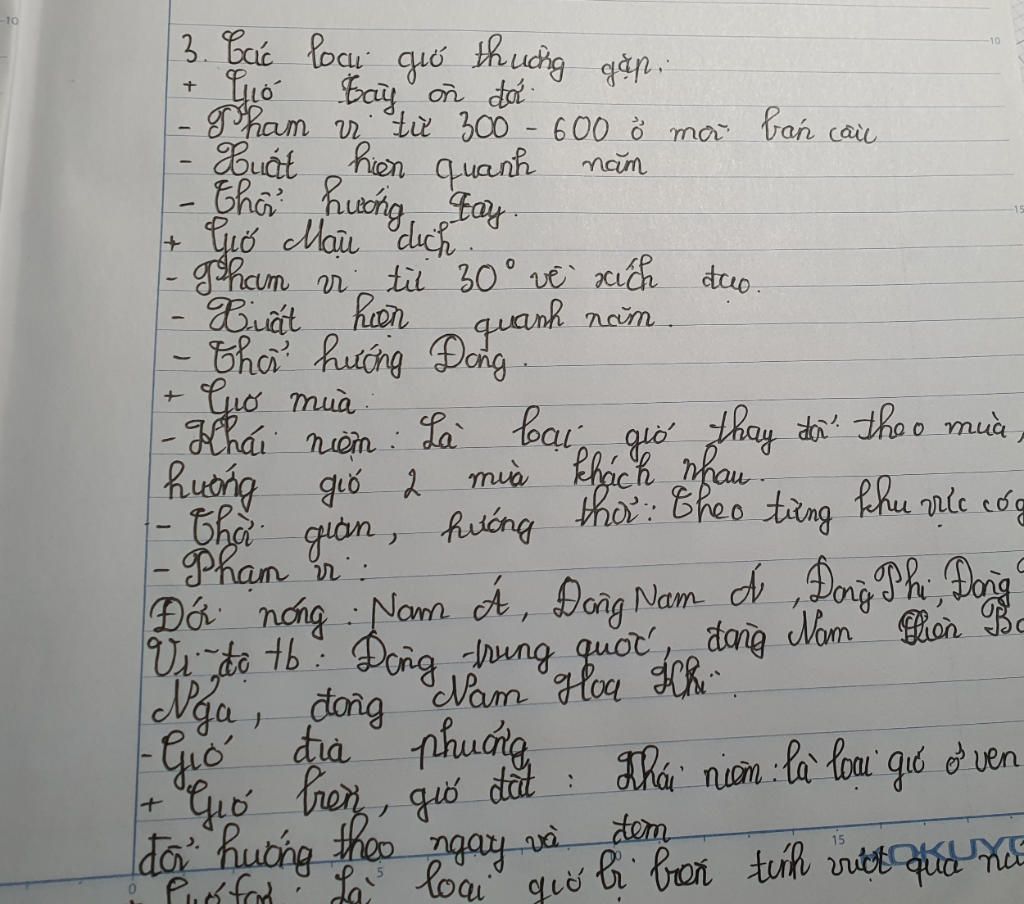 3. Các loại gió thường gặp.
+ Gió Tây ôn đới
- Phạm vi từ 300 - 600 ở mỗi bán cầu
- Xuất hiện quanh năm
- Thổi hướng Tây.
+ Gió Mậu dịch.
- Phạm vi từ 30° về xích đạo.
- Xuất hiện quanh năm.
- Thổi hướng Đông.
+ Gió mùa.
- Khái niệm: Là loại gió thay đổi theo mùa,
hướng gió 2 mùa khách nhau.
- Thời gian, hướng thổi: Theo từng khu vực có g
- Phạm vi:
Đới nóng: Nam Á, Đông Nam Á, Đông Phi, Đông
Vĩ độ tb: Đông trung quốc, đông Nam
Nga, đông Nam Hoa Kì.
- Gió địa phương
+ Gió biển, gió đất: Khái niệm: là loại gió ở ven
đổi hướng theo ngày và đêm
là loại gió bị biến tính vượt qua
KOKUYO